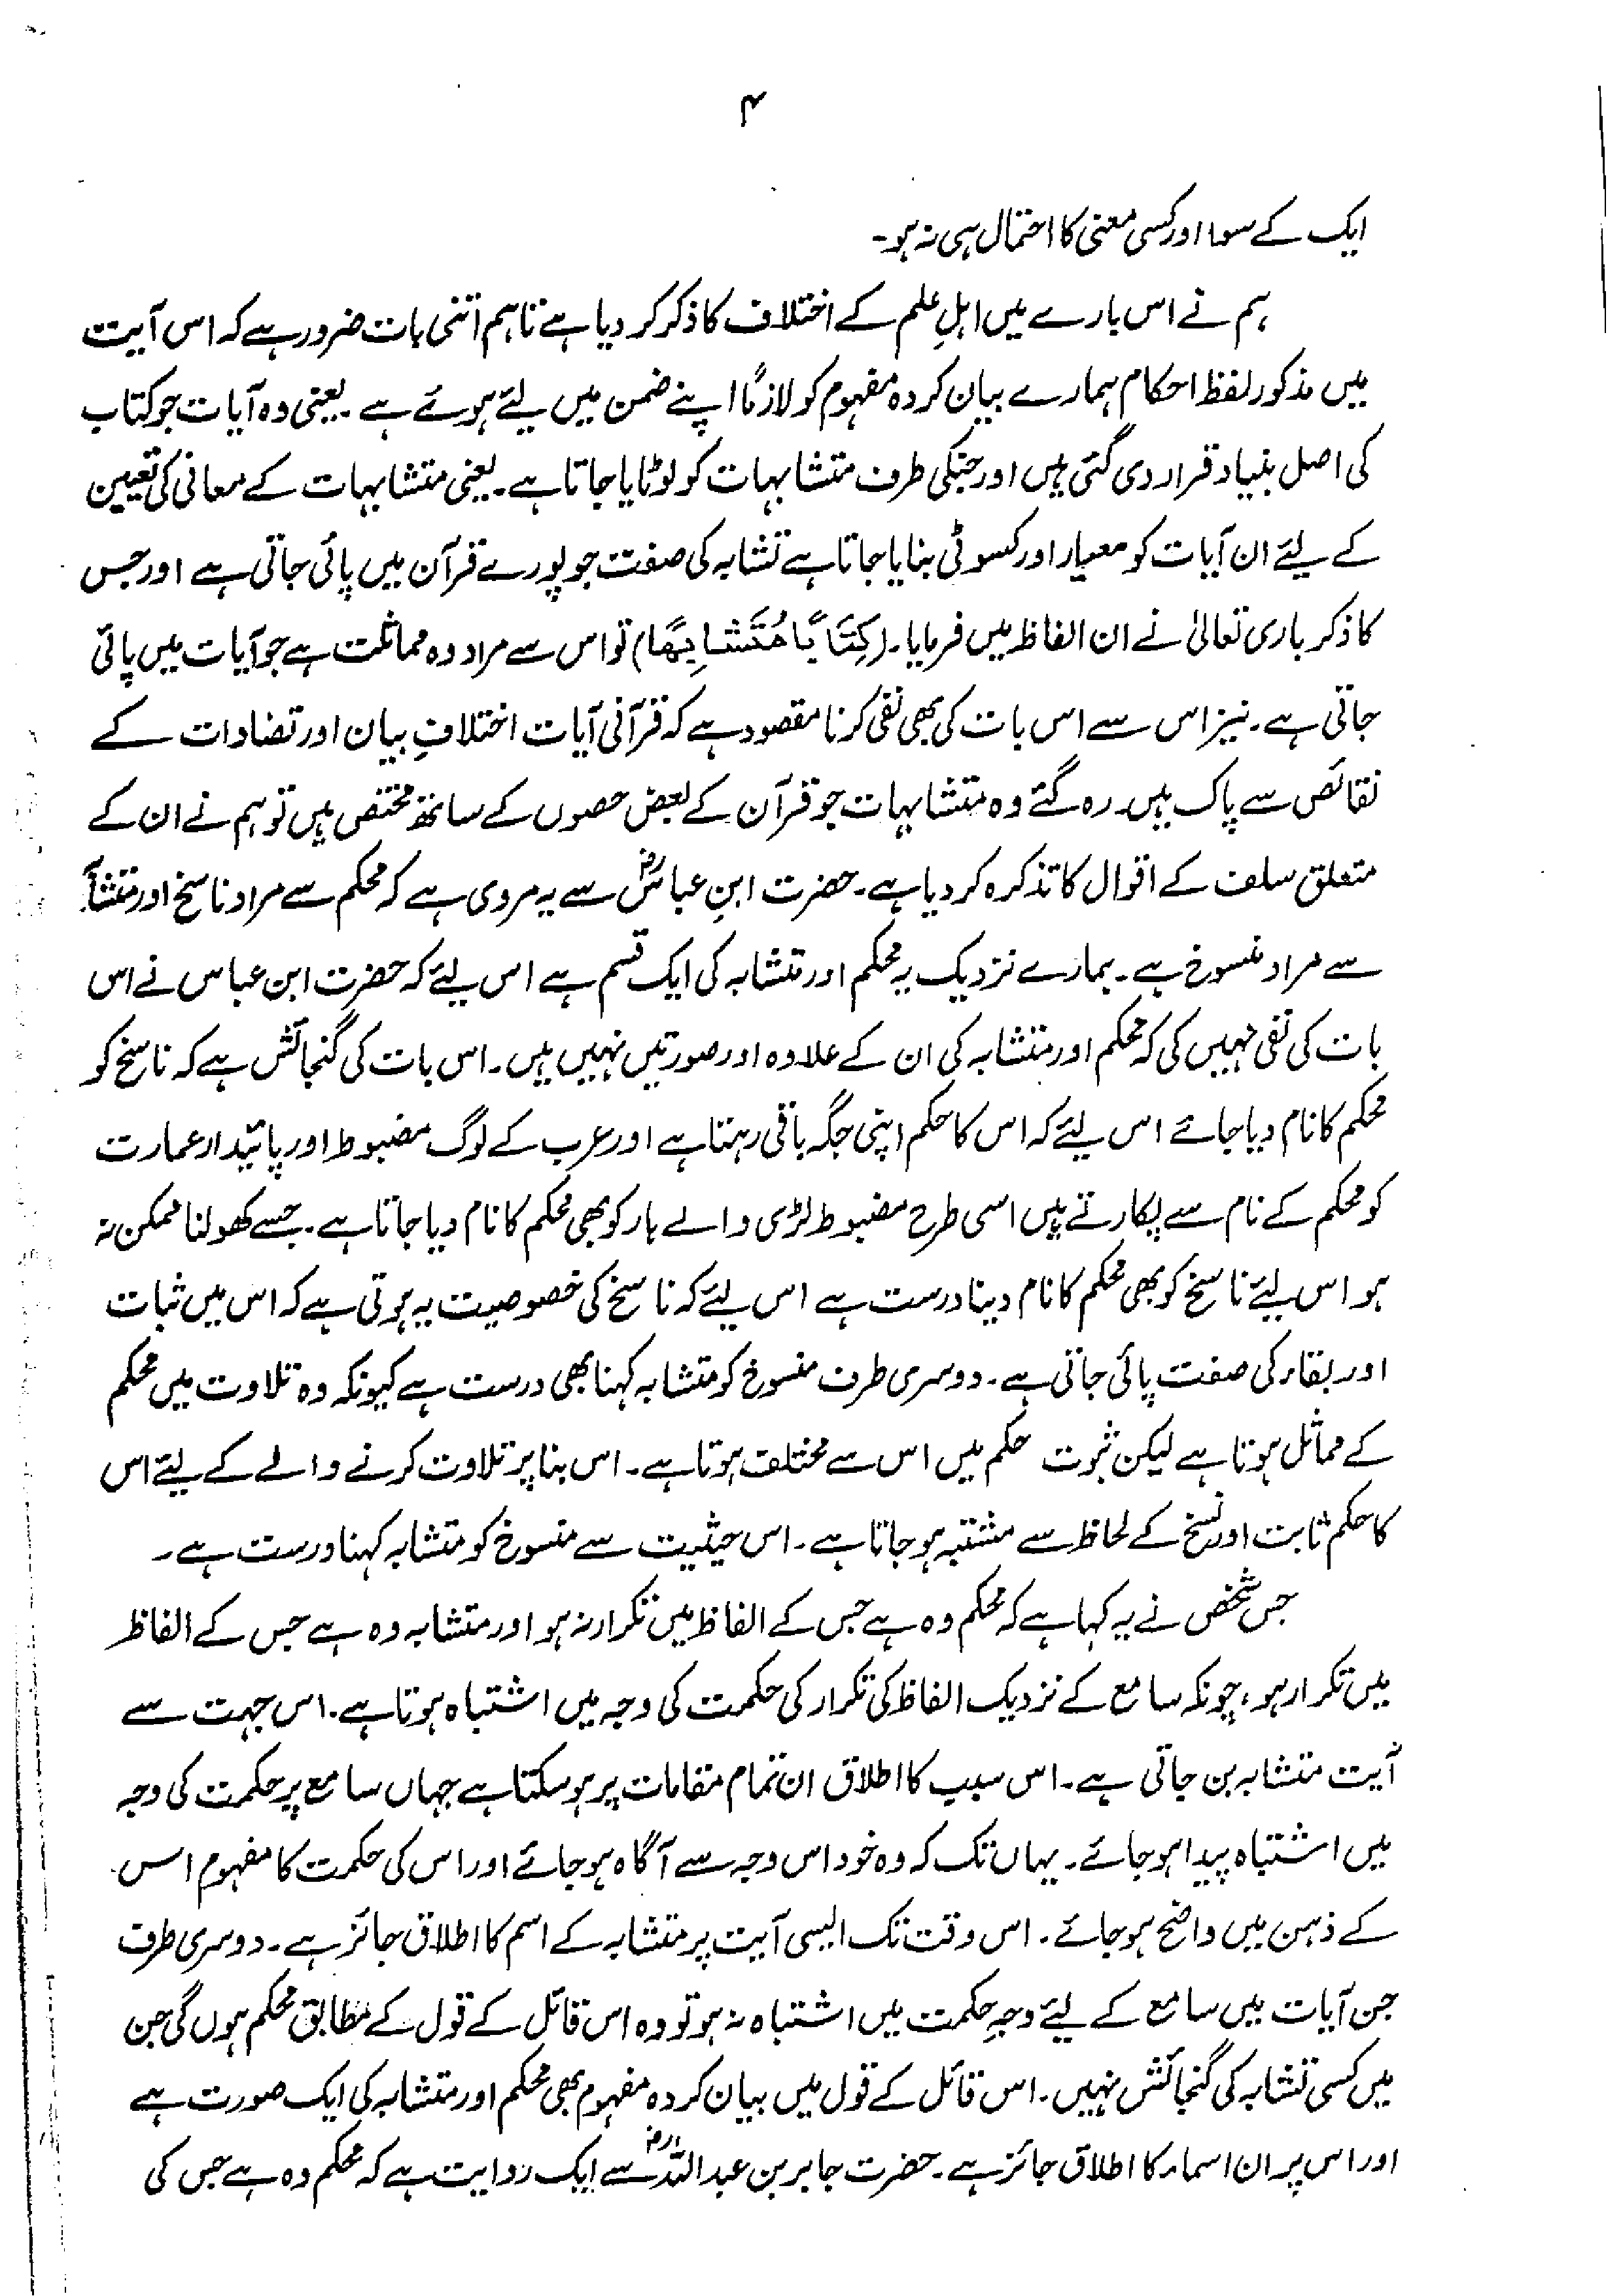 ۴
ایک کے سوا اور کسی معنی کا احتمال ہی نہ ہو۔
ہم نے اس بارے میں اہلِ علم کے اختلاف کا ذکر کر دیا ہے تاہم اتنی بات ضرور ہے کہ اس آیت
میں مذکور لفظ احکام ہمارے بیان کردہ مفہوم کو لازمًا اپنے ضمن میں لیئے ہوئے ہے۔ یعنی وہ آیات جو کتاب
کی اصل بنیاد قرار دی گئی ہیں اور جنکی طرف متشابہات کو لوٹایا جاتا ہے۔ یعنی متشابہات کے معانی کی تعیین
کے لیئے ان آیات کو معیار اور کسوٹی بنایا جاتا ہے تشابہ کی صفت جو پورے قرآن میں پائی جاتی ہے اور جس
کا ذکر باری تعالیٰ نے ان الفاظ میں فرمایا۔ (کِتَابًا مُتَشَابِہًا) تو اس سے مراد وہ مماثلت ہے جو آیات میں پائی
جاتی ہے۔ نیز اس سے اِس بات کی بھی نفی کرنا مقصود ہے کہ قرآنی آیات اختلافِ بیان اور تضادات کے
نقائص سے پاک ہیں۔ رہ گئے وہ متشابہات جو قرآن کے بعض حصوں کے ساتھ مختص ہیں تو ہم نے ان کے
متعلق سلف کے اقوال کا تذکرہ کر دیا ہے۔ حضرت ابنِ عباسؓ سے یہ مروی ہے کہ محکم سے مراد ناسخ اور متشابہ
سے مراد منسوخ ہے۔ ہمارے نزدیک یہ محکم اور متشابہ کی ایک قسم ہے اس لیئے کہ حضرت ابن عباس نے اس
بات کی نفی نہیں کی کہ محکم اور متشابہ کی ان کے علاوہ اور صورتیں نہیں ہیں۔ اس بات کی گنجائش ہے کہ ناسخ کو
محکم کا نام دیا جائے اس لیئے کہ اس کا حکم اپنی جگہ باقی رہتا ہے اور عرب کے لوگ مضبوط اور پائیدار عمارت
کو محکم کے نام سے پکارتے ہیں اسی طرح مضبوط لڑی والے ہار کو بھی محکم کا نام دیا جاتا ہے۔ جسے کھولنا ممکن نہ
ہو اس لیئے ناسخ کو بھی محکم کا نام دینا درست ہے اس لیئے کہ ناسخ کی خصوصیت یہ ہوتی ہے کہ اس میں ثبات
اور بقاء کی صفت پائی جاتی ہے۔ دوسری طرف منسوخ کو متشابہ کہنا بھی درست ہے کیونکہ وہ تلاوت میں محکم
کے مماثل ہوتا ہے لیکن ثبوت حکم میں اس سے مختلف ہوتا ہے۔ اس بنا پر تلاوت کرنے والے کے لیئے اس
کا حکم ثابت اور نسخ کے لحاظ سے مشتبہ ہو جاتا ہے۔ اس حیثیت سے منسوخ کو متشابہ کہنا درست ہے۔
جس شخص نے یہ کہا ہے کہ محکم وہ ہے جس کے الفاظ میں تکرار نہ ہو اور متشابہ وہ ہے جس کے الفاظ
میں تکرار ہو، چونکہ سامع کے نزدیک الفاظ کی تکرار کی حکمت کی وجہ میں اشتباہ ہوتا ہے۔ اس جہت سے
آیت متشابہ بن جاتی ہے۔ اس سبب کا اطلاق ان تمام مقامات پر ہو سکتا ہے جہاں سامع پر حکمت کی وجہ
میں اشتباہ پیدا ہو جائے۔ یہاں تک کہ وہ خود اس وجہ سے آگاہ ہو جائے اور اس کی حکمت کا مفہوم اس
کے ذہن میں واضح ہو جائے۔ اس وقت تک ایسی آیت پر متشابہ کے اسم کا اطلاق جائز ہے۔ دوسری طرف
جن آیات میں سامع کے لیئے وجہِ حکمت میں اشتباہ نہ ہو تو وہ اس قائل کے قول کے مطابق محکم ہوں گی جن
میں کسی تشابہ کی گنجائش نہیں۔ اس قائل کے قول میں بیان کردہ مفہوم بھی محکم اور متشابہ کی ایک صورت ہے
اور اس پر ان اسماء کا اطلاق جائز ہے۔ حضرت جابر بن عبداللہؓ سے ایک روایت ہے کہ محکم وہ ہے جس کی